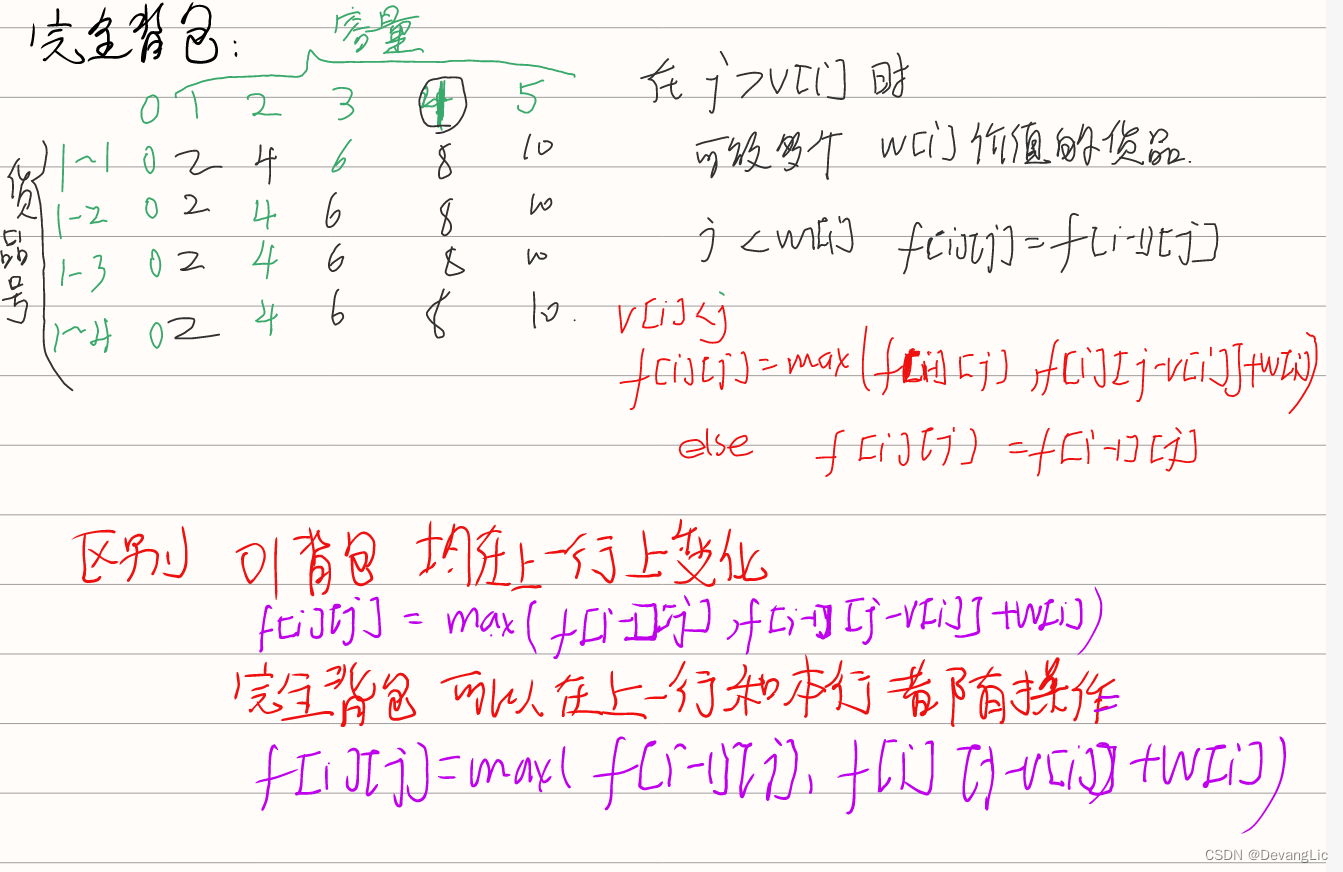 完全背包:
容量
0 1 2 3 4 5
货品号
1~1 0 2 4 6 8 10
1-2 0 2 4 6 8 10
1-3 0 2 4 6 8 10
1~4 0 2 4 6 8 10.
在 j>v[i] 时
可放多个 w[i] 价值的货品.
j <w[i] f[i][j]=f[i-1][j]
v[i]<j
f[i][j]=max(f[i-1][j],f[i][j-v[i]]+w[i])
else f[i][j]=f[i-1][j]
区别 01背包 均在上一行上变化
f[i][j] = max(f[i-1][j],f[i-1][j-v[i]]+w[i])
完全背包 可以在上一行和本行都有操作
f[i][j]=max(f[i-1][j],f[i][j-v[i]]+w[i])
CSDN @DevangLic